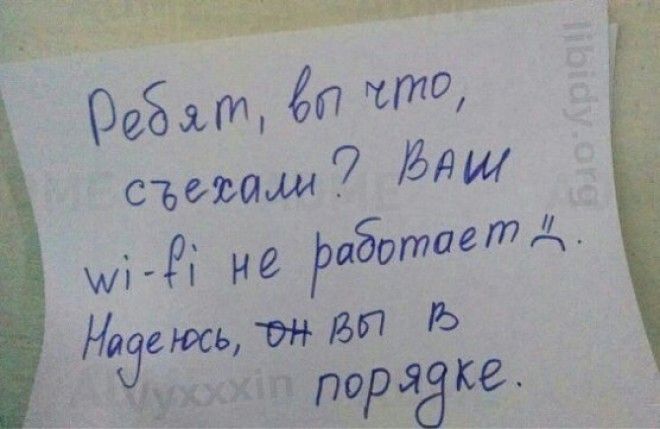 Ребят, вы что,
съехали? ВАШ
wi-fi не работает :(.
Надеюсь, он вы в
порядке.
libidy.org
vyxxxin